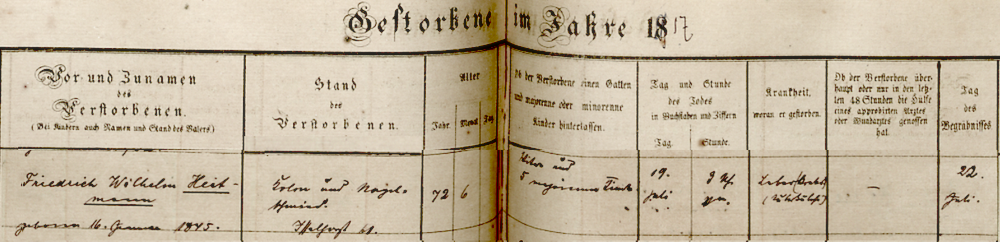 Gestorbene im Jahre 1817
Vor- und Zunamen
des
Verstorbenen.
(Bei Kindern auch Namen und Stand des Vaters)
Stand
des
Verstorbenen.
Alter
Jahr. Monat. Tag.
Ob der Verstorbene einen Gatten
und majorenne oder minorenne
Kinder hinterlassen.
Tag und Stunde
des Todes
in Buchstaben und Ziffern
Tag. Stunde.
Krankheit,
woran er gestorben.
Ob der Verstorbene über-
haupt oder nur in den letz-
ten 48 Stunden die Hülfe
eines approbirten Arztes
oder Wundarztes genossen
hat.
Tag
des
Begräbnisses
Friedrich Wilhelm Heit-
mann
geboren 16. Januar 1845.
Kolon und Nagel-
schmied.
Isselhorst
72 6
und
5
19.
Juli
9
Leber
—
22.
Juli.